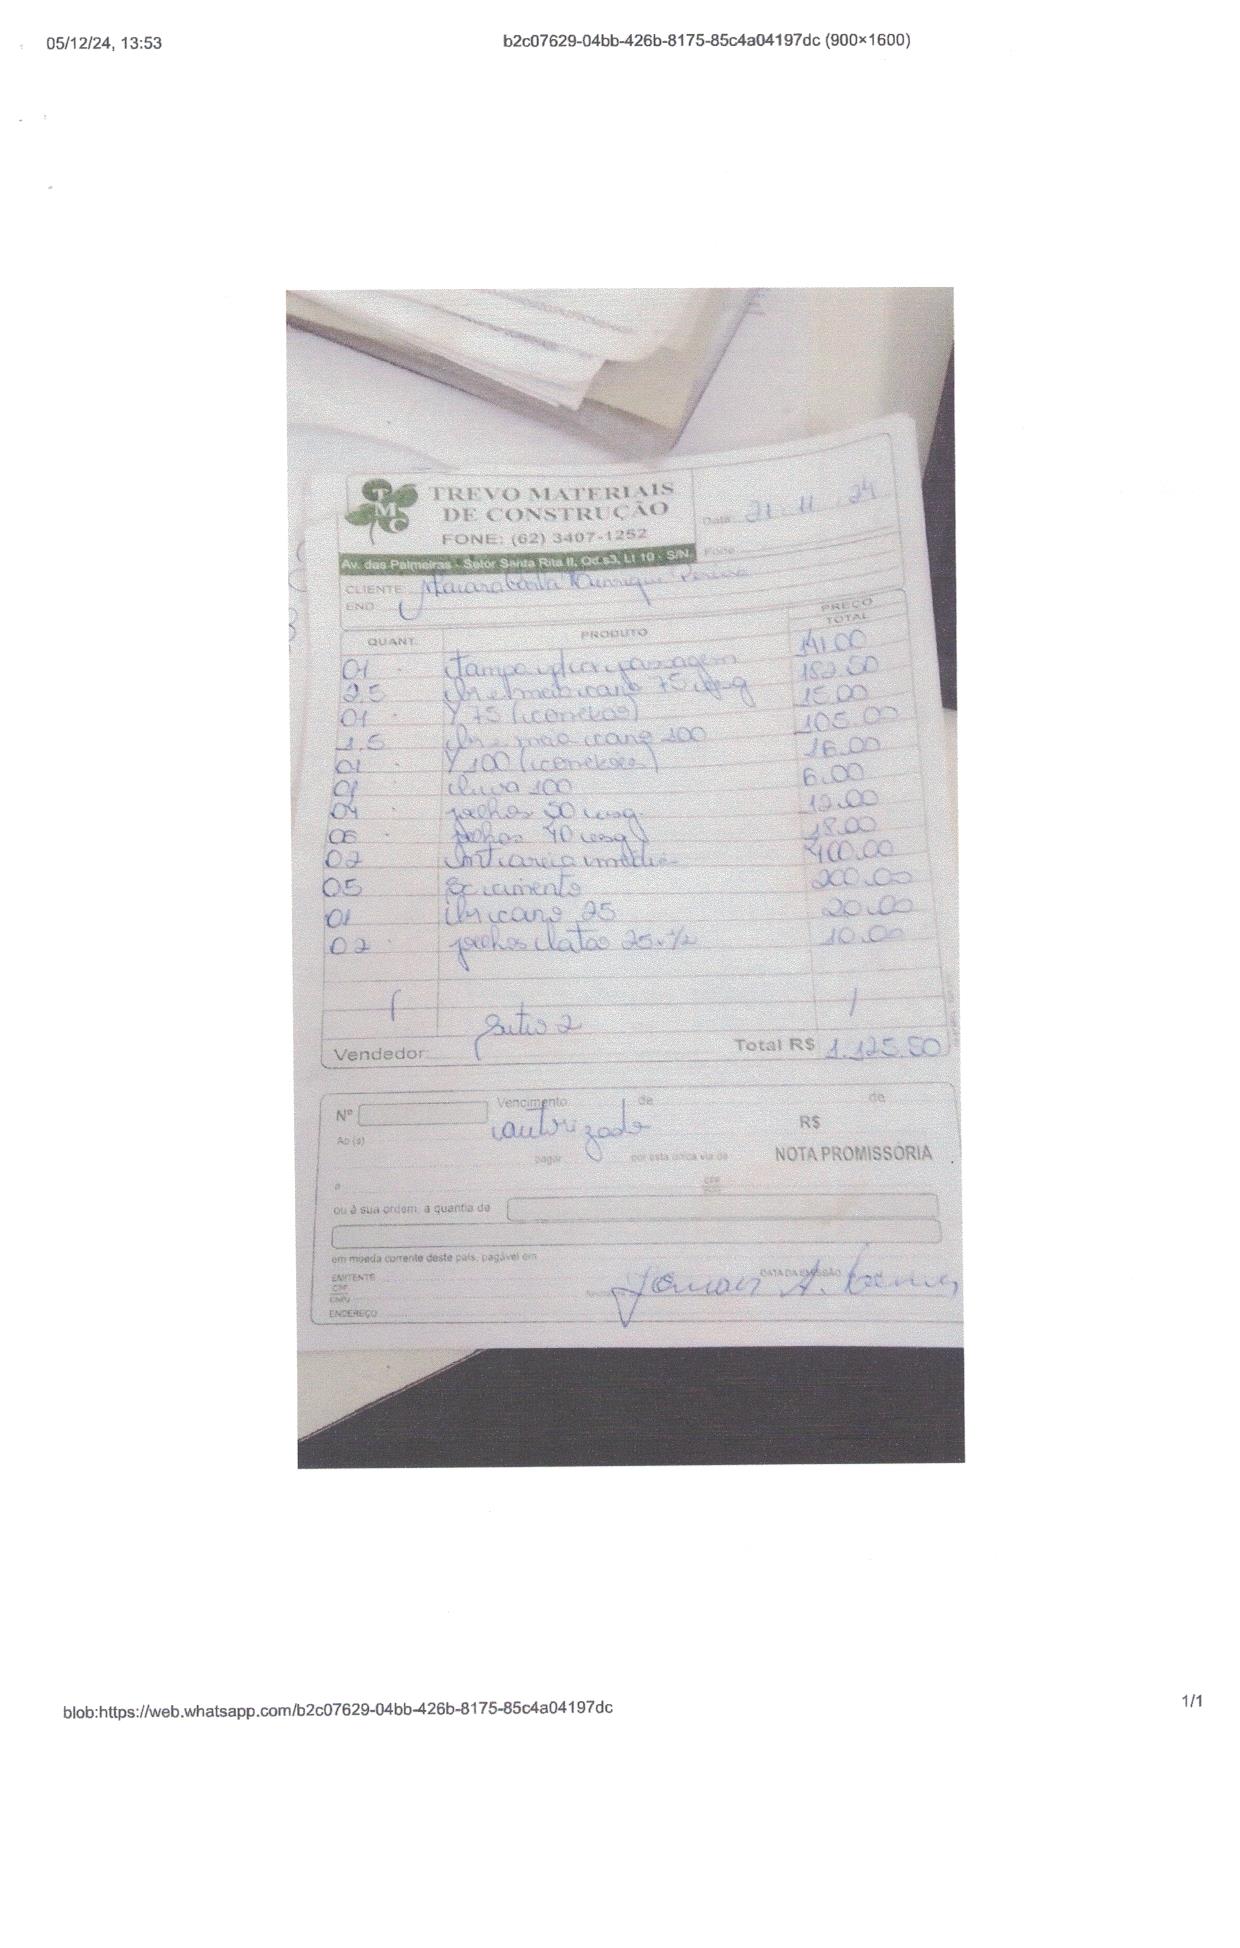 05/12/24, 13:53
b2c07629-04bb-426b-8175-85c4a04197dc (900×1600)
TMC
TREVO MATERIAIS
DE CONSTRUÇÃO
FONE: (62) 3407-1252
Av. das Palmeiras - Setor Santa Rita II, Qd.s3, Lt 10 - S/N.
Data 21 11 24
Fone
CLIENTE: Henrique Pereira
END
QUANT. PRODUTO PREÇO TOTAL
01 tampa passagem 141.00
2.5 cano 75 esg 182.50
01 Y 75 15.00
1.5 cano 100 105.00
01 Y 100 16.00
01 curva 100 6.00
04 joelhos 50 esg 12.00
06 joelhos 40 esg 18.00
02 areia media 400.00
05 cimento 200.00
01 cano 25 20.00
02 joelhos latao 25.1/2 10.00
2
Vendedor: Total R$ 1.125.50
Nº Vencimento de de
autorizado
R$
Ao (s)
pagar por esta única via de NOTA PROMISSÓRIA
a CPF
ou à sua ordem, a quantia de
em moeda corrente deste país, pagável em
EMITENTE DATA DA EMISSÃO
CPF
CNPJ
ENDEREÇO
blob:https://web.whatsapp.com/b2c07629-04bb-426b-8175-85c4a04197dc
1/1